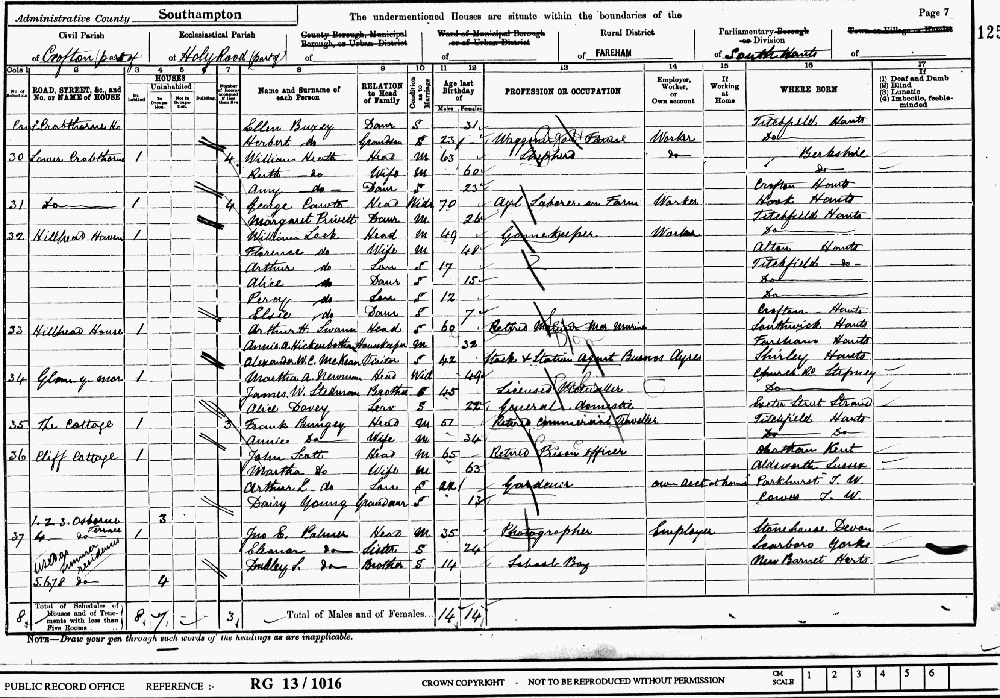 Administrative County Southampton The undermentioned Houses are situate within the boundaries of the Page 7
125
Civil Parish Ecclesiastical Parish County Borough, Municipal Borough, or Urban District Ward of Municipal Borough or of Urban District Rural District Parliamentary Borough or Division Town or Village or Hamlet
of Crofton (part of of Holy Rood (part of) of of of FAREHAM of South Hants of
Cols 1 2 3 4 5 6 7 8 9 10 11 12 13 14 15 16 17
No. of Schedule ROAD, STREET, &c., and No. or NAME of HOUSE HOUSES Inhabited Uninhabited In Occupation Not in Occupation Building Number of Rooms occupied if less than five Name and Surname of each Person RELATION to Head of Family Condition as to Marriage Age last Birthday of Males Females PROFESSION OR OCCUPATION Employer, Worker, or Own account If Working at Home WHERE BORN (1) Deaf and Dumb (2) Blind (3) Lunatic (4) Imbecile, feeble-minded
Crabthorne Ho Ellen Buxey Daur S 31 Titchfield Hants
Herbert do Grandson S 23 Waggoner Farm Worker Do
30 Lower Crabthorne 1 4 William Heath Head M 63 Shepherd do Berkshire
Ruth do Wife M 60 Do
Amy do Daur S 23 Crofton Hants
31 Do 1 4 George Head Wid 70 Agl Laborer on Farm Worker Hook Hants
Margaret Privett Daur M 26 Titchfield Hants
32 Hillhead Haven 1 William Lock Head M 49 Gamekeeper Worker Do
Florence do Wife M 48 Alton Hants
Arthur do Son S 17 Titchfield do
Alice do Daur S 15 Do
Percy do Son S 12 Do
Elsie do Daur S 7 Crofton Hants
33 Hillhead House 1 Arthur H. Swann Head S 60 Retired Southwick Hants
Annie A Hickenbotham Housekeeper M 32 Fareham Hants
Alexander W. C. McKean Visitor S 42 Stock & Station Agent Buenos Ayres Shirley Hants
34 1 Martha A. Newman Head Wid 49 Church Rd Stepney
James W. Stedman Brother S 45 Licensed Do
Alice Davey Serv S 22 General domestic Exeter Street Strand
35 The Cottage 1 3 Frank Head M 51 Retired Commercial Traveller Titchfield Hants
Annie Do Wife M 34 Do Do
36 Cliff Cottage 1 John Scott Head M 65 Retired Prison Officer Chatham Kent
Martha Do Wife M 63 Aldsworth Sussex
Arthur L. do Son S 22 Gardener own acct at home Parkhurst I. W.
Daisy Young Grandaur S 13 Cowes I. W.
1. 2. 3. Osborne Terrace 3
37 4 do 1 Jno E. Palmer Head M 35 Photographer Employer Stonehouse Devon
Used as Summer residences Eleanor do Sister S 24 Scarboro Yorks
Dudley S. do Brother S 14 School Boy New Barnet Herts
5.6.7.8 do 4
8 Total of Schedules of Houses and of Tenements with less than Five Rooms 8 7 3 Total of Males and of Females... 14 14
NOTE—Draw your pen through such words of the headings as are inapplicable.
PUBLIC RECORD OFFICE REFERENCE :- RG 13/1016 CROWN COPYRIGHT - NOT TO BE REPRODUCED WITHOUT PERMISSION CM SCALE 1 2 3 4 5 6